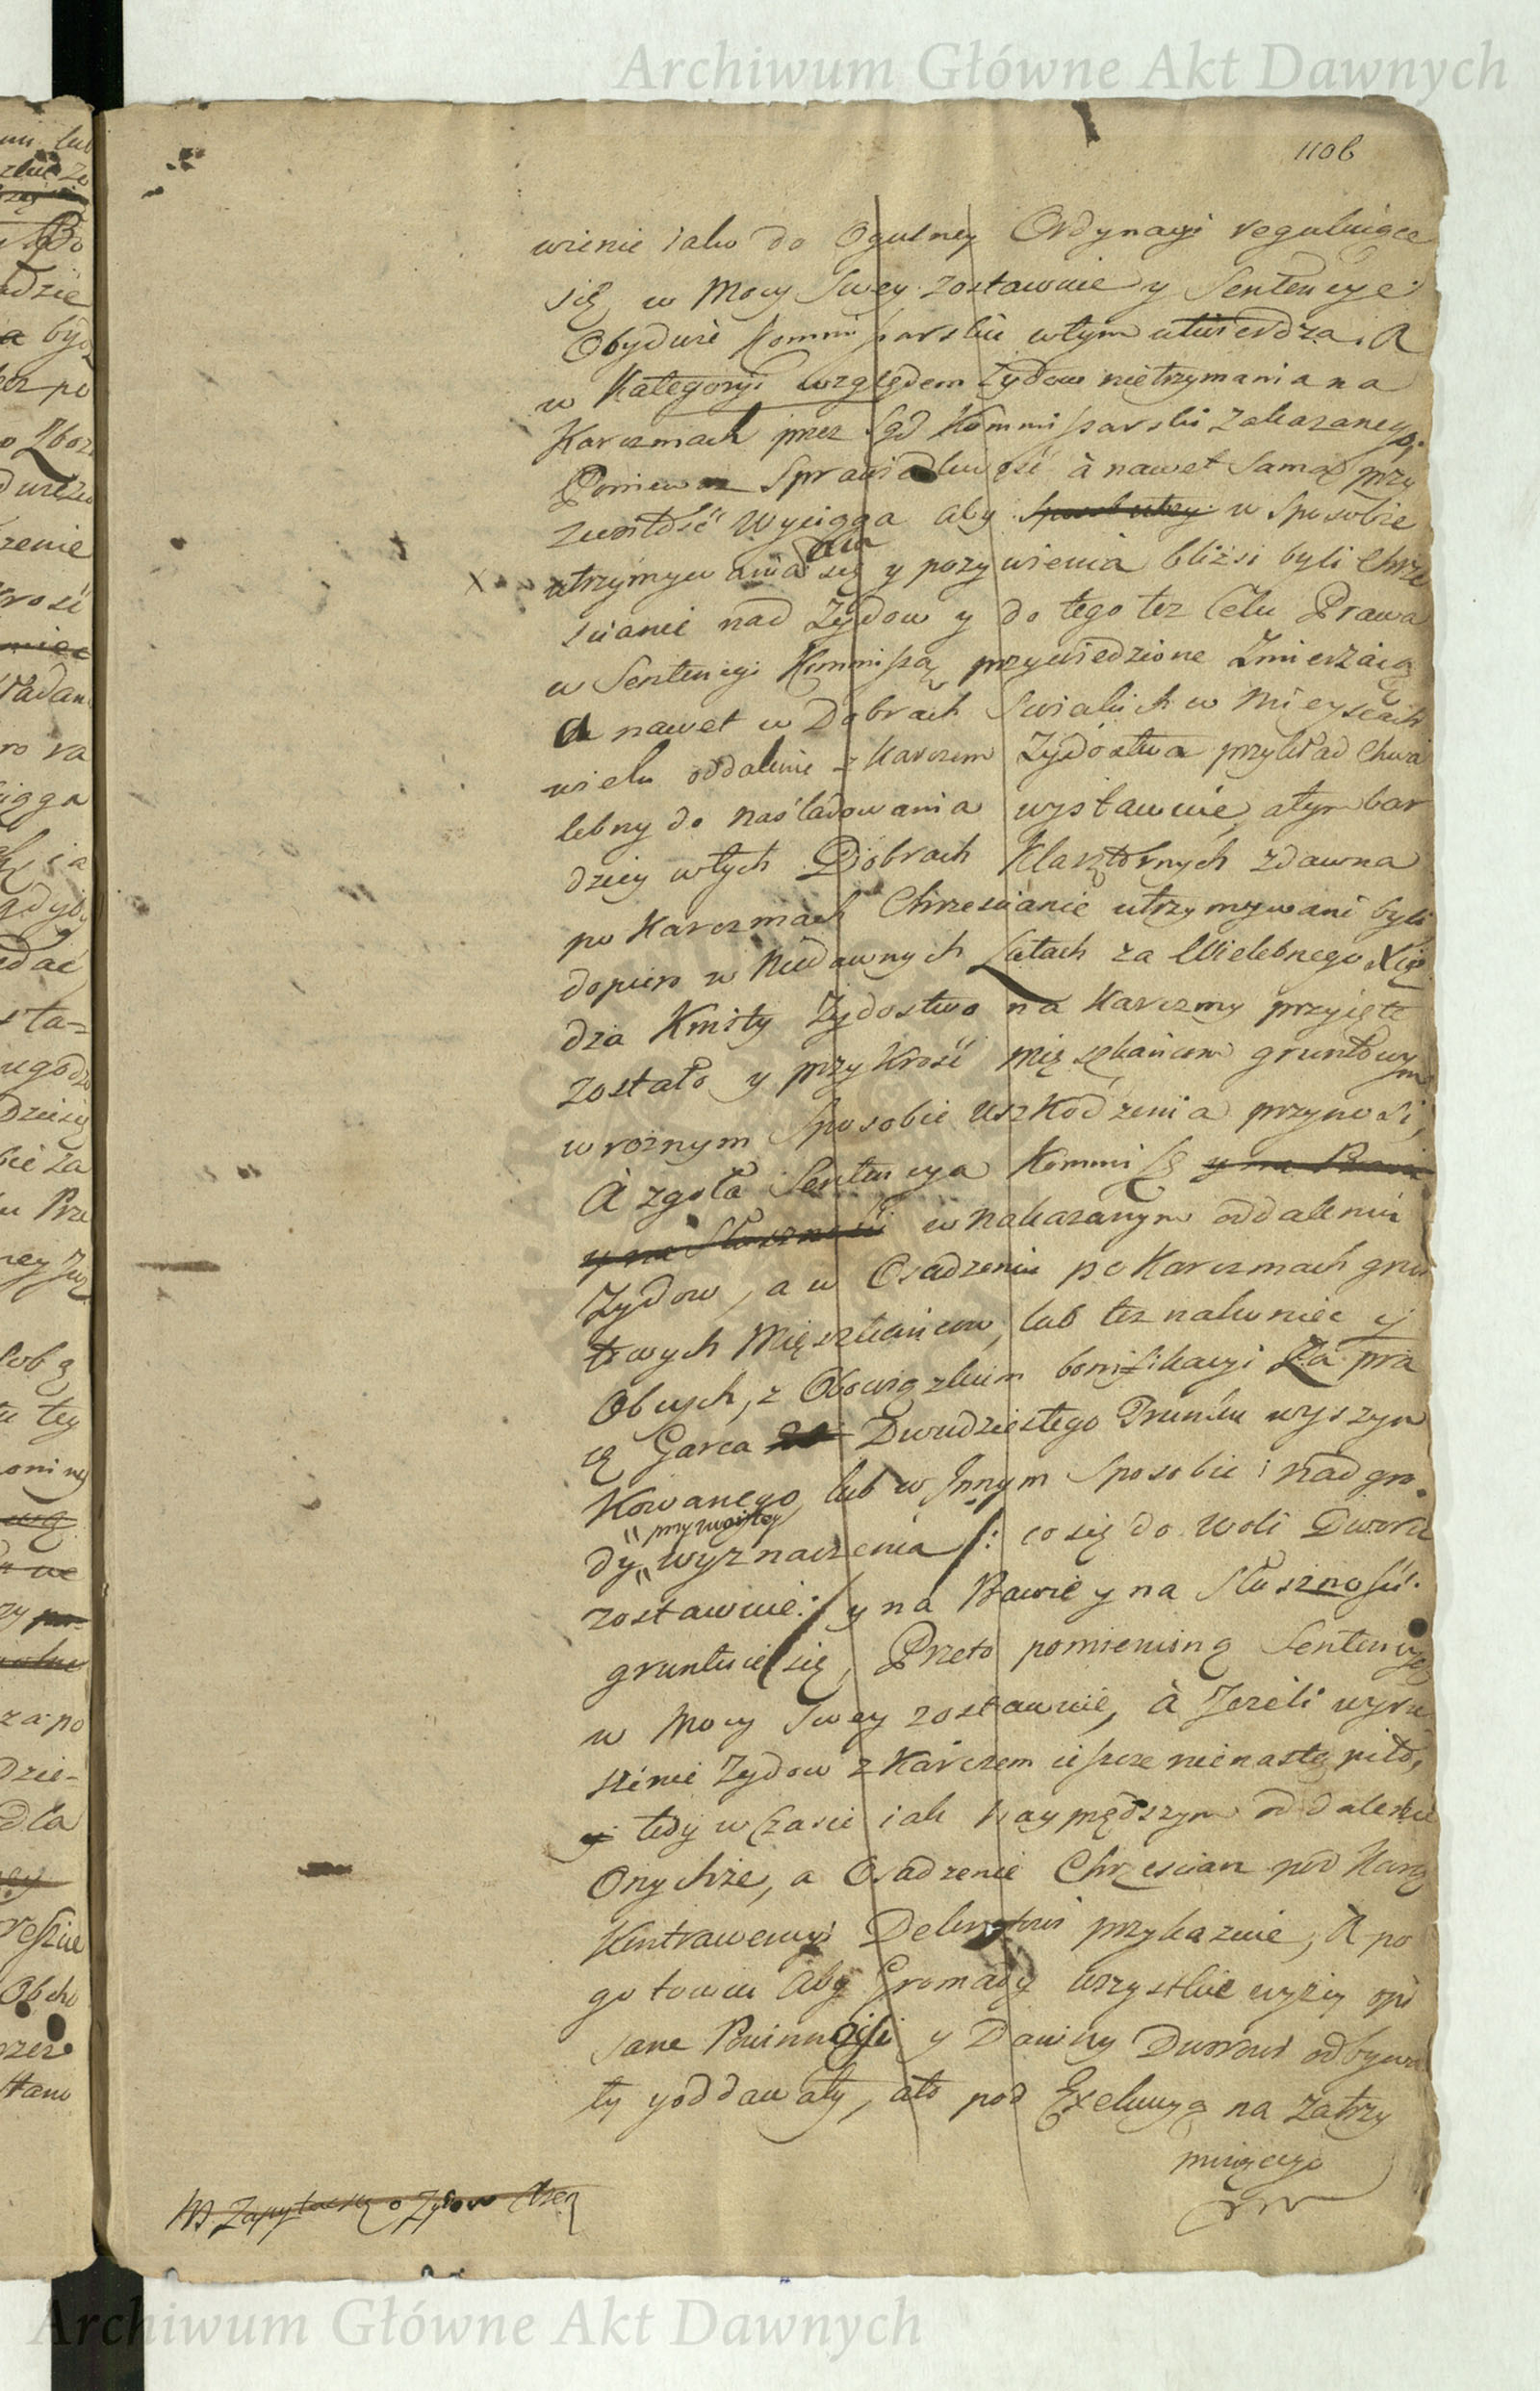 Archiwum Główne Akt Dawnych
110b
wienie iako do Ogulney Ordynacyi reguluiące
się w Mocy Swey zostawuie y Sentencye
Obydwie Kommissarskie wtym utwierdza. A
w Kategoryi względem Zydow nietrzymania na
Karczmach przez Sąd Kommissarski zakazanego
Poniewaz Sprawiedliwość à nawet Sama przy
zwoitość Wyciąga aby w Sposobie
utrzymywania się y pozywienia bliżsi byli Chrze
sćianie nad Zydow y do tego tez Celu Prawa
w Sentencyi Kommissą przywiedzione Zmierzaią
A nawet w Dobrach Swieckich w Mieyscach
wielu oddalenie z Karczem Zydostwa przykład Chwa
lebny do naśladowania wystawuie, atym bar
dziey wtych Dobrach Klasztornych zdawna
po Karczmach Chrzesćianie utrzymywani byli
dopiero w Niedawnych Latach za Wielebnego Xię
dza Kmity Zydostwo na Karczmy przyięte
zostało y przykrość Mięszkańcom gruntowym
w roznym Sposobie uszkodzenia przynosi,
A zgoła Sentencya Kommissą y na Prawie
y na Słuszności w nakazanym oddaleniu
Zydow, a w Osadzeniu po Karczmach grun
towych Mięszkancow, lub tez nakoniec y
Obcych, z Obowiązkiem bonifikacyi Za pra
cą Garca Dwudziestego Trunku wyszyn
kowanego lub w Innym Sposobie nadgro
przyzwoitey
dy wyznaczenia /: co się do Woli Dworu
zostawuie :/ y na Prawie y na Słuszności
gruntuie się, Przeto pomienioną Sentencyę
w Mocy Swey zostawuie, à Jezeli wyru
szenie Zydow z Karczem ieszcze nienastąpiło,
tedy w Czasie iak nayprędszym oddalenie
Onychże, a Osadzenie Chrzescian pod Karą
Kontrawencyi przykazuie, A po
gotowiu Aby Gromady wszystkie wyżey opi
sane Powinności y Daniny Dworowi odbywa
ły y oddawały, ato pod Exekucyą na Zatrzy
muiącego
NB Zapytac się o Zydow
Archiwum Główne Akt Dawnych